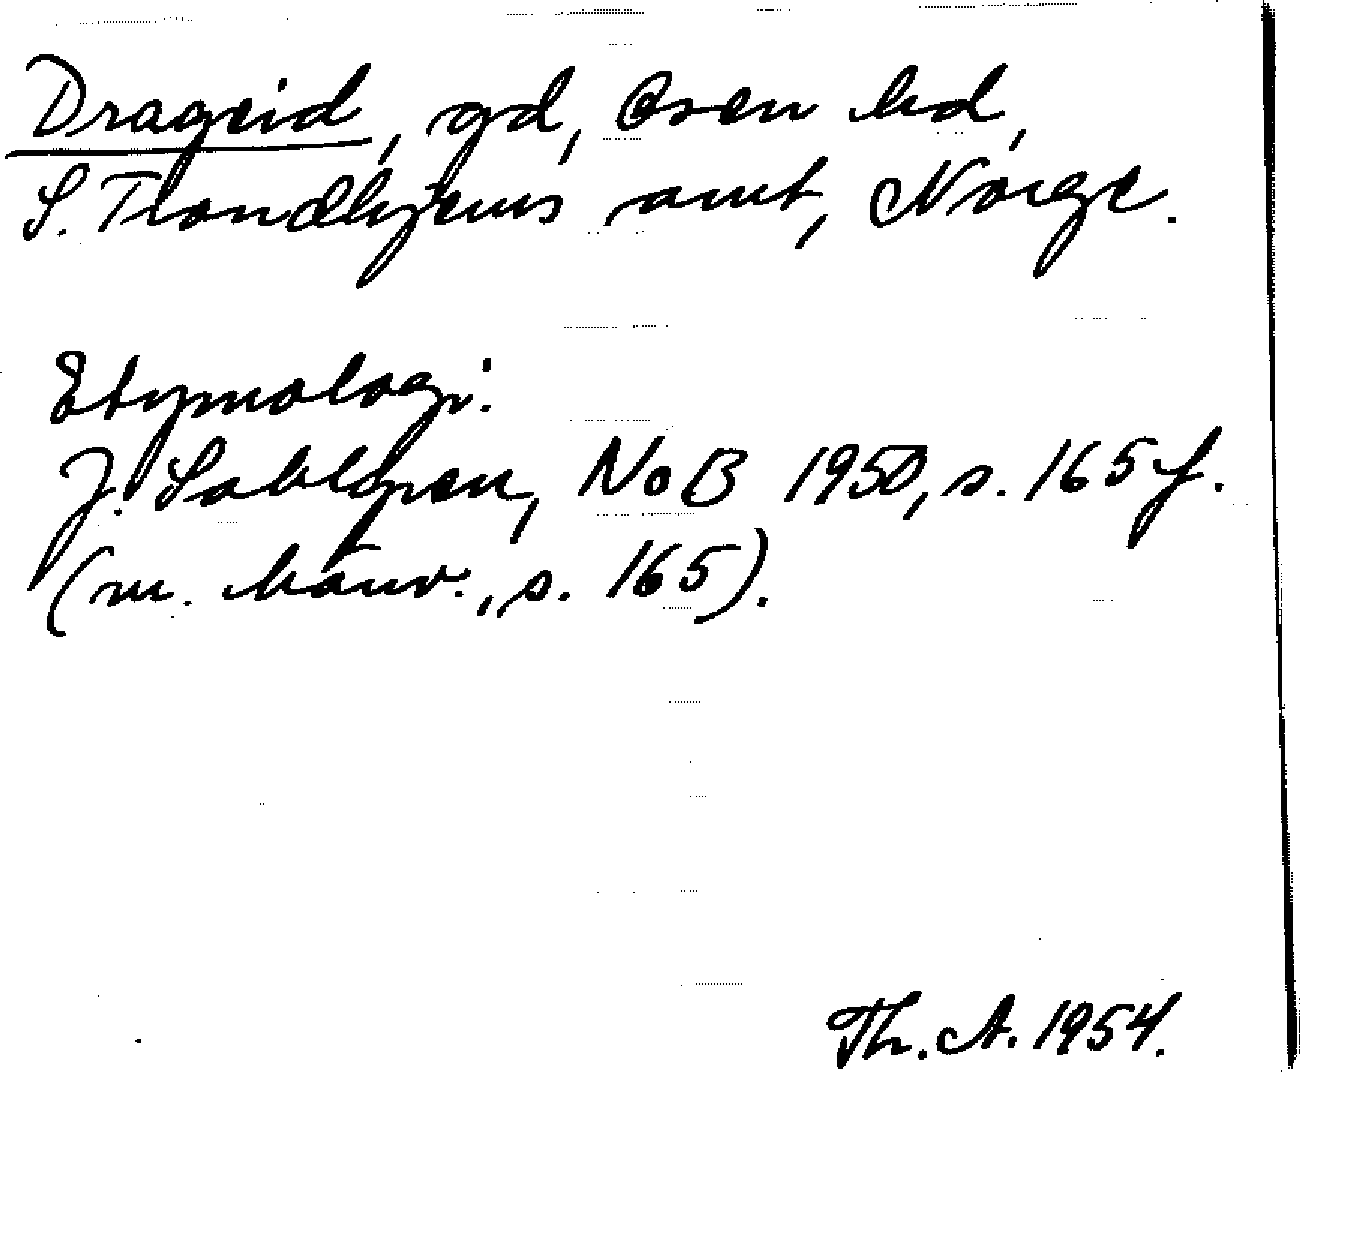 Drageid, gd, Osen hd,
S. Trondhjems amt, Norge.
Etymologi:
J. Sahlgren, NoB 1950, s. 165 f.
(m. hänv., s. 165).
Th. A. 1954.